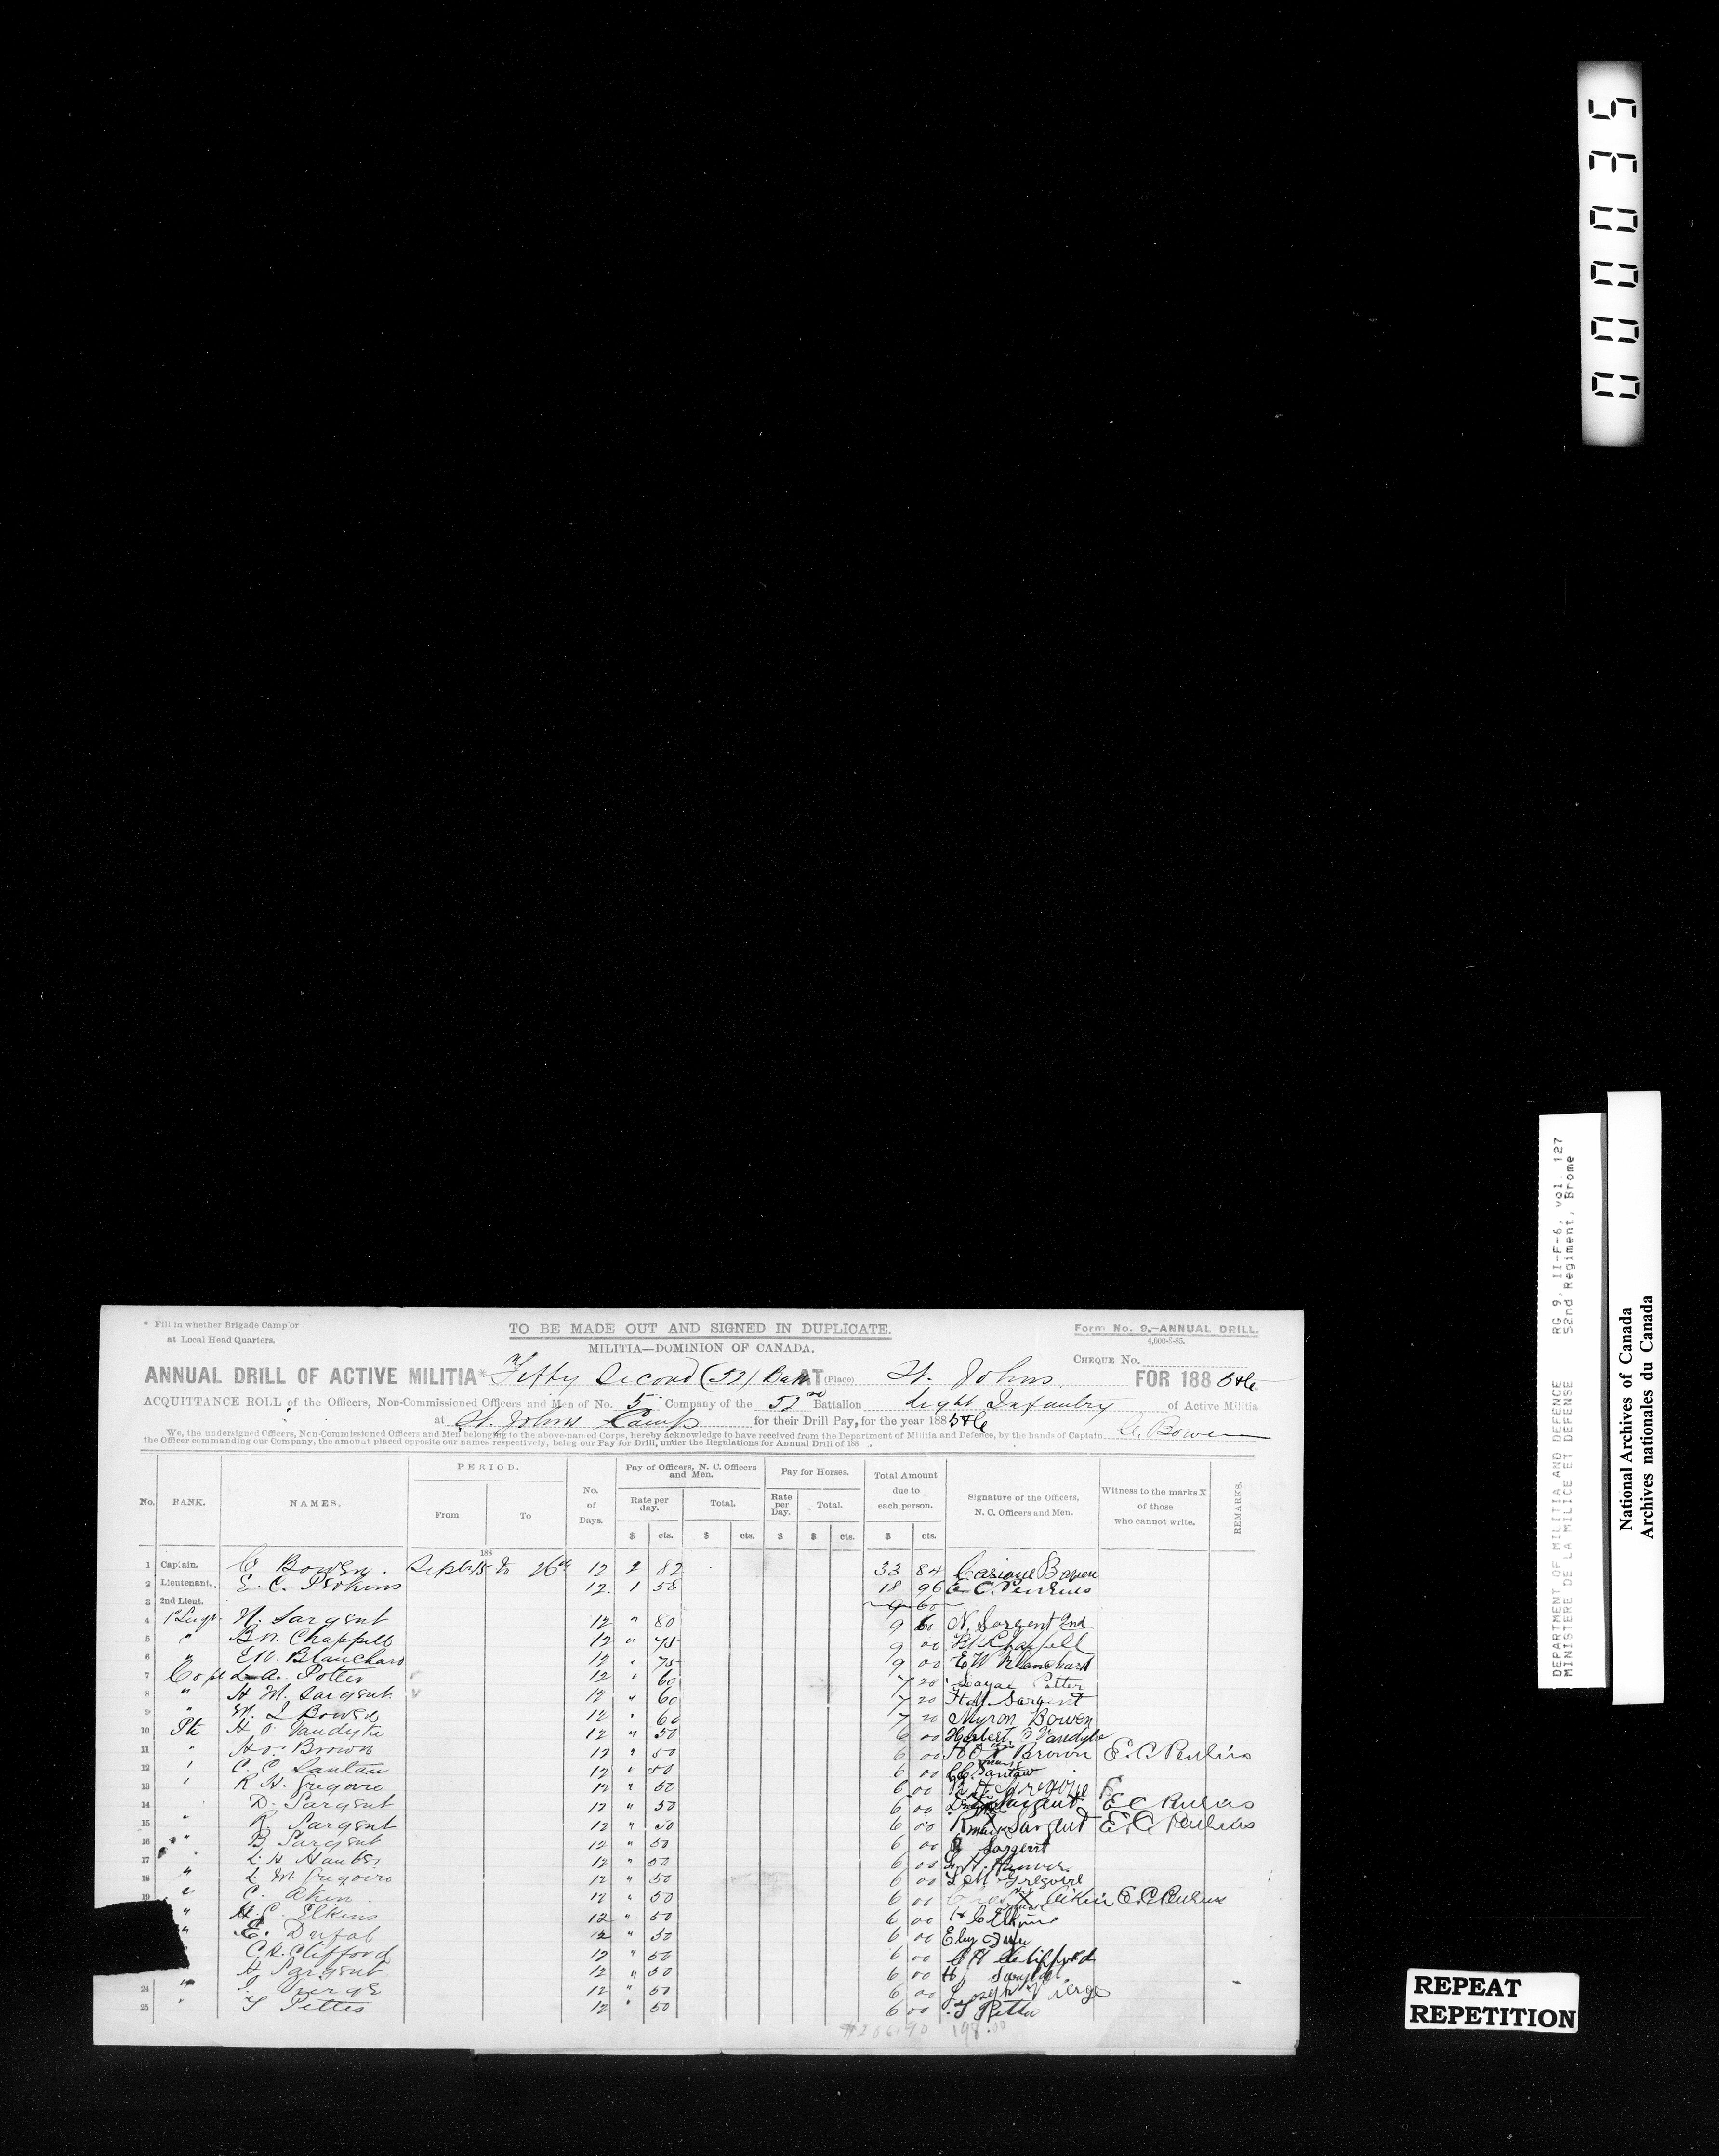 00035
* Fill in whether Brigade Camp or
at Local Head Quarters.
TO BE MADE OUT AND SIGNED IN DUPLICATE.
Form No. 9.—ANNUAL DRILL.
4,000-8-85.
MILITIA—DOMINION OF CANADA.
CHEQUE No.
ANNUAL DRILL OF ACTIVE MILITIA* Fifty Second (52) Batt AT (Place) St. Johns FOR 188
ACQUITTANCE ROLL of the Officers, Non-Commissioned Officers and Men of No. 5 Company of the 52nd Battalion Light Infantry of Active Militia
at St. Johns Camp for their Drill Pay, for the year 188
We, the undersigned Officers, Non-Commissioned Officers and Men belonging to the above-named Corps, hereby acknowledge to have received from the Department of Militia and Defence, by the hands of Captain C. Bowen
the Officer commanding our Company, the amount placed opposite our names respectively, being our Pay for Drill, under the Regulations for Annual Drill of 188 .
No. RANK. NAMES. PERIOD. From To No. of Days. Pay of Officers, N. C. Officers and Men. Rate per day. $ cts. Total. $ cts. Pay for Horses. Rate per Day. $ Total. $ cts. Total Amount due to each person. $ cts. Signature of the Officers, N. C. Officers and Men. Witness to the marks X of those who cannot write. REMARKS.
188
1 Captain. C Bowen. Sept 15 to 26th 12 2 82 33 84 Bowen
2 Lieutenant. E. C. Perkins 12 1 58 18 96 E. C. Perkins
3 2nd Lieut. 9 60
4 1st Sergt. N. Sargent 12 " 80 9 60 N. Sargent 2nd
5 " B N. Chappell 12 " 75 9 00 Chappell
6 " E W. Blanchard 12 " 75 9 00 E W Blanchard
7 Corpl L. A. Potter 12 " 60 7 20 Potter
8 " H M. Sargent 12 " 60 7 20 H M Sargent
9 " M. L Bowen 12 " 60 7 20 Myron Bowen
10 Pte H. O. Vandyke 12 " 50 6 00 Herbert O Vandyke
11 " H O. Brown 12 " 50 6 00 H O X Brown E. C. Perkins
12 " C. C. Santaw 12 " 50 6 00 C C Santaw
13 " R H. Gregoire 12 " 50 6 00 R H Gregoire
14 D. Sargent 12 " 50 6 00 D X Sargent E C Perkins
15 " R. Sargent 12 " 50 6 00 R X mark Sargent E. C. Perkins
16 " B Sargent 12 " 50 6 00 B Sargent
17 " L H 12 " 50 6 00 L H
18 " L M. Gregoire 12 " 50 6 00 L M Gregoire
19 " C. Aken 12 " 50 6 00 X Aiken E. C. Perkins
" H. C. Elkins 12 " 50 6 00 H C Elkins
" E. 12 " 50 6 00
C. H. Clifford 12 " 50 6 00 C H Clifford
H Sargent 12 " 50 6 00 H Sargent
24 " J. Vierge 12 " 50 6 00 Joseph Vierge
25 " T Pettes 12 " 50 6 00 T Pettes
$206.90 198.00
DEPARTMENT OF MILITIA AND DEFENCE RG 9, II-F-6, vol. 127
MINISTERE DE LA MILICE ET DEFENSE 52nd Regiment, Brome
National Archives of Canada
Archives nationales du Canada
REPEAT
REPETITION